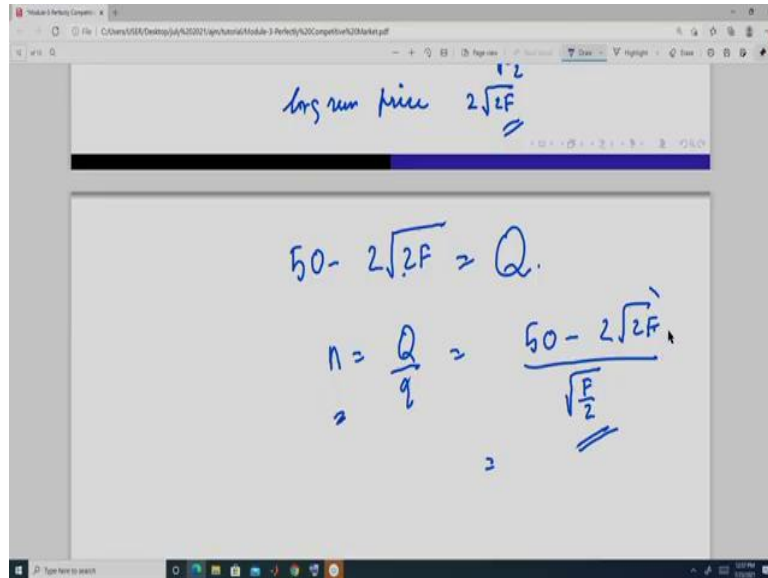 Module-3-Perfectly Competi
File
C:/Users/USER/Desktop/july%202021/ajm/tutorial/Module-3-Perfectly%20Competitive%20Market.pdf
Page view
Draw
Highlight
long run price 2√2F
50 - 2√2F = Q.
n = Q/q = (50 - 2√2F)/√(F/2)
=
=
Type here to search